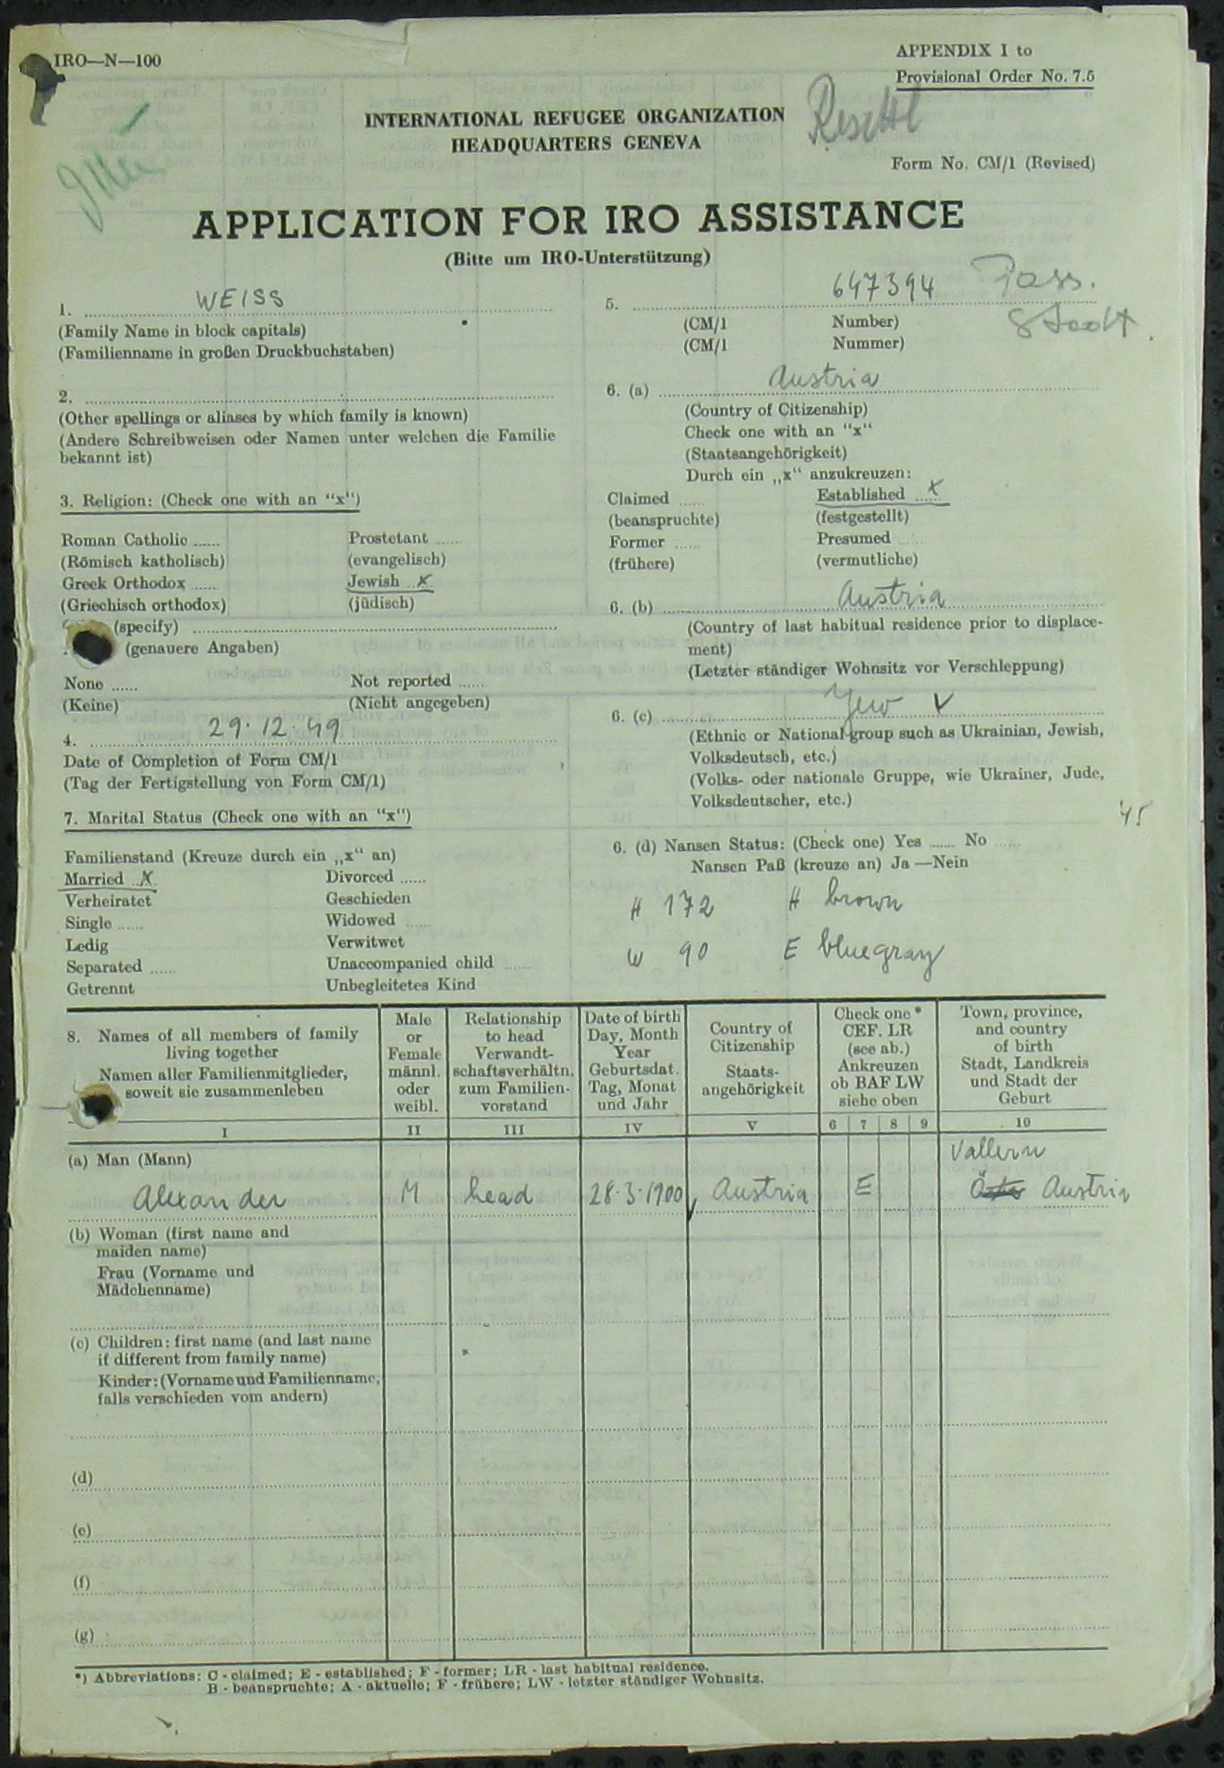 IRO—N—100
APPENDIX I to
Provisional Order No. 7.5
INTERNATIONAL REFUGEE ORGANIZATION
HEADQUARTERS GENEVA
Resettl
Form No. CM/1 (Revised)
APPLICATION FOR IRO ASSISTANCE
(Bitte um IRO-Unterstützung)
1. WEISS
(Family Name in block capitals)
(Familienname in großen Druckbuchstaben)
2.
(Other spellings or aliases by which family is known)
(Andere Schreibweisen oder Namen unter welchen die Familie
bekannt ist)
3. Religion: (Check one with an "x")
Roman Catholic ...... Prostetant ......
(Römisch katholisch) (evangelisch)
Greek Orthodox ...... Jewish x
(Griechisch orthodox) (jüdisch)
(specify)
(genauere Angaben)
None ...... Not reported ......
(Keine) (Nicht angegeben)
4. 29.12.49
Date of Completion of Form CM/1
(Tag der Fertigstellung von Form CM/1)
7. Marital Status (Check one with an "x")
Familienstand (Kreuze durch ein „x“ an)
Married x Divorced ......
Verheiratet Geschieden
Single ...... Widowed ......
Ledig Verwitwet
Separated ...... Unaccompanied child ......
Getrennt Unbegleitetes Kind
5. 647394 Pass.
(CM/1 Number)
(CM/1 Nummer)
6. (a) Austria
(Country of Citizenship)
Check one with an "x"
(Staatsangehörigkeit)
Durch ein „x“ anzukreuzen:
Claimed ...... Established x
(beanspruchte) (festgestellt)
Former ...... Presumed ......
(frühere) (vermutliche)
6. (b) Austria
(Country of last habitual residence prior to displace-
ment)
(Letzter ständiger Wohnsitz vor Verschleppung)
6. (c) Jew V
(Ethnic or National group such as Ukrainian, Jewish,
Volksdeutsch, etc.)
(Volks- oder nationale Gruppe, wie Ukrainer, Jude,
Volksdeutscher, etc.)
45
6. (d) Nansen Status: (Check one) Yes ...... No ......
Nansen Paß (kreuze an) Ja —Nein
H 172 H brown
W 90 E bluegray
8. Names of all members of family
living together
Namen aller Familienmitglieder,
soweit sie zusammenleben
Male
or
Female
männl.
oder
weibl.
Relationship
to head
Verwandt-
schaftsverhältn.
zum Familien-
vorstand
Date of birth
Day, Month
Year
Geburtsdat.
Tag, Monat
und Jahr
Country of
Citizenship
Staats-
angehörigkeit
Check one *
CEF. LR
(see ab.)
Ankreuzen
ob BAF LW
siehe oben
Town, province,
and country
of birth
Stadt, Landkreis
und Stadt der
Geburt
I II III IV V 6 7 8 9 10
(a) Man (Mann)
Vallern
Alexander M head 28.3.1900 Austria E Austria
(b) Woman (first name and
maiden name)
Frau (Vorname und
Mädchenname)
(c) Children: first name (and last name
if different from family name)
Kinder: (Vorname und Familienname,
falls verschieden vom andern)
(d)
(e)
(f)
(g)
*) Abbreviations: C - claimed; E - established; F - former; LR - last habitual residence.
B - beanspruchte; A - aktuelle; F - frühere; LW - letzter ständiger Wohnsitz.